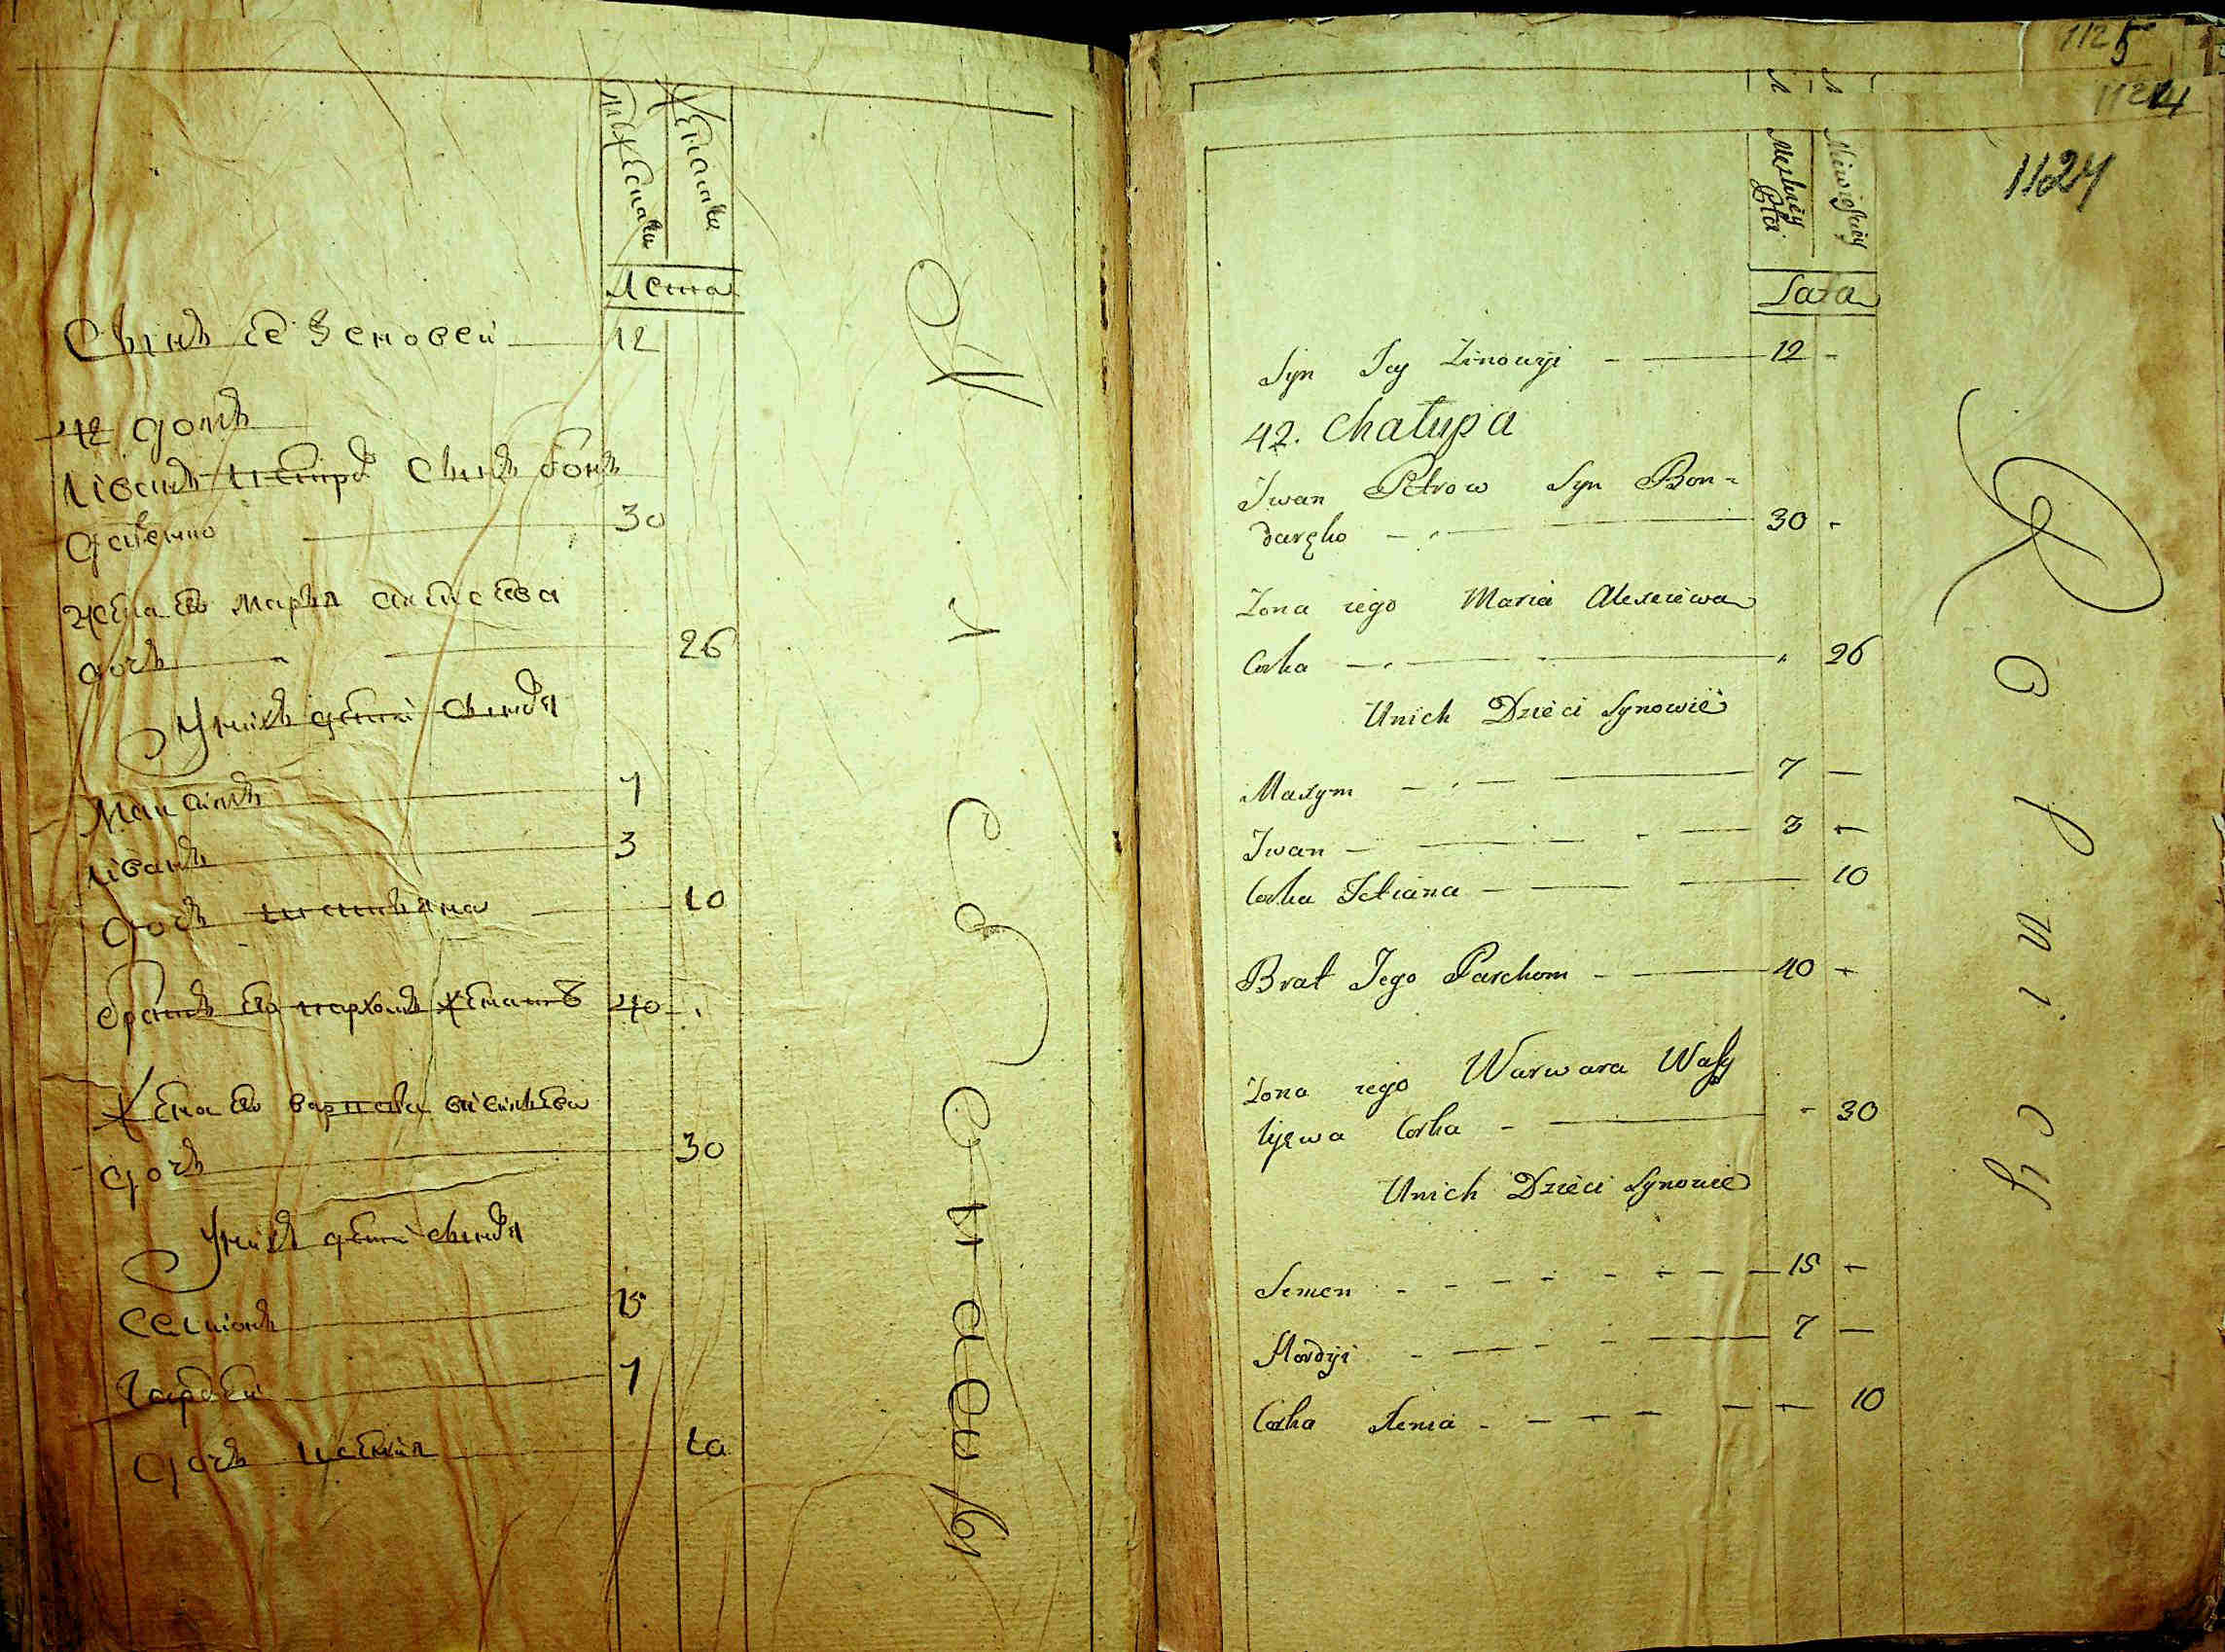 Мужеска
Женска
Лета
Сынъ ее Зеновеи 12
42 домъ
Иванъ Петровъ сынъ Бон
даренко 30
Жена ево Марья Алексеева
дочь 26
У нихъ дети сыновья
Максимъ 7
Иванъ 3
дочь Татьяна 10
братъ ево Пархомъ женатъ 40
Жена ево Варвара Васильева
дочь 30
У нихъ дети сыновья
Семионъ 15
Гардеи 7
дочь 10
1125
1124
1124
Męskiey
Płci
Niewieściey
Lata
Syn Jey Zinowiji 12 -
42. Chałupa
Jwan Petrow Syn Bon-
daręko 30 -
Zona iego Maria Alexeiewa
Corka 26
Unich Dzieci Synowie
Maxym 7 —
Jwan 3 —
Corka Tetiana 10
Brat Jego Parchom 40 -
Zona iego Warwara Wasy
lyiewa Corka - 30
Unich Dzieci Synowie
Semen 15 -
Hordyi 7 —
Corka Xenia 10